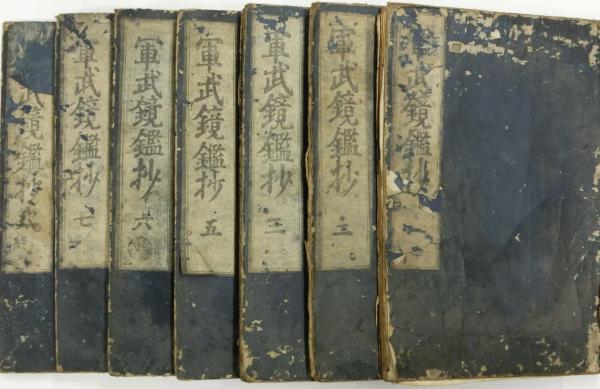 軍武鏡鑑抄
軍武鏡鑑抄 二
軍武鏡鑑抄 三
軍武鏡鑑抄 五
軍武鏡鑑抄 六
軍武鏡鑑抄 七
武鏡鑑抄